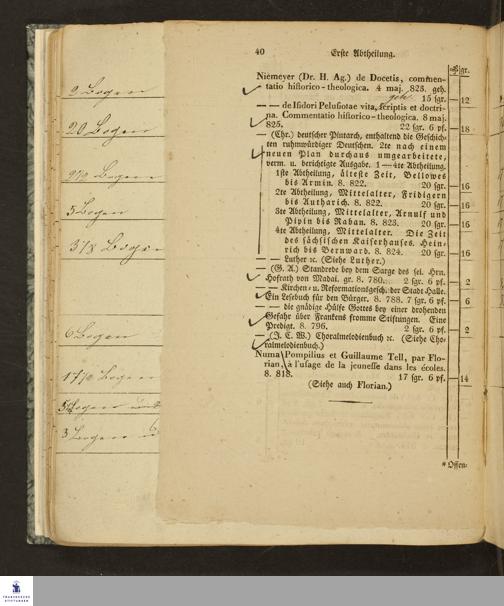 9 Bogen
20 Bogen
5 Bogen
3 7/8 Bogen
6 Bogen
Bogen
Bogen
3 Bogen
40 Erste Abtheilung.
gr.
Niemeyer (Dr. H. Ag.) de Docetis, commen-
tatio historico-theologica. 4 maj. 823. geh.
15 sgr. 12
geh.
— — de Isidori Pelusiotae vita, scriptis et doctri-
na. Commentatio historico-theologica. 8 maj.
825. 22 sgr. 6 pf. 18
— (Chr.) deutscher Plutarch, enthaltend die Geschich-
ten ruhmwürdiger Deutschen. 2te nach einem
neuen Plan durchaus umgearbeitete,
verm. u. berichtigte Ausgabe. 1 — 4te Abtheilung.
1ste Abtheilung, älteste Zeit, Bellowes
bis Armin. 8. 822. 20 sgr. 16
2te Abtheilung, Mittelalter, Fridigern
bis Autharich. 8. 822. 20 sgr. 16
3te Abtheilung, Mittelalter, Arnulf und
Pipin bis Raban. 8. 823. 20 sgr. 16
4te Abtheilung, Mittelalter. Die Zeit
des sächsischen Kaiserhauses. Hein-
rich bis Bernward. 8. 824. 20 sgr. 16
— — Luther ꝛc. (Siehe Luther.)
— (G. A.) Standrede bey dem Sarge des sel. Hrn.
Hofrath von Madai. gr. 8. 780. 2 sgr. 6 pf. 2
— — Kirchen- u. Reformationsgesch. der Stadt Halle.
Ein Lesebuch für den Bürger. 8. 788. 7 sgr. 6 pf. 6
— — die gnädige Hülfe Gottes bey einer drohenden
Gefahr über Frankens fromme Stiftungen. Eine
Predigt. 8. 796. 2 sgr. 6 pf. 2
— (J. C. W.) Choralmelodienbuch ꝛc. (Siehe Cho-
ralmelodienbuch.)
Numa Pompilius et Guillaume Tell, par Flo-
rian, à l'usage de la jeunesse dans les écoles.
8. 818. 17 sgr. 6 pf. 14
(Siehe auch Florian.)
* Offen-
FRANCKESCHE
STIFTUNGEN